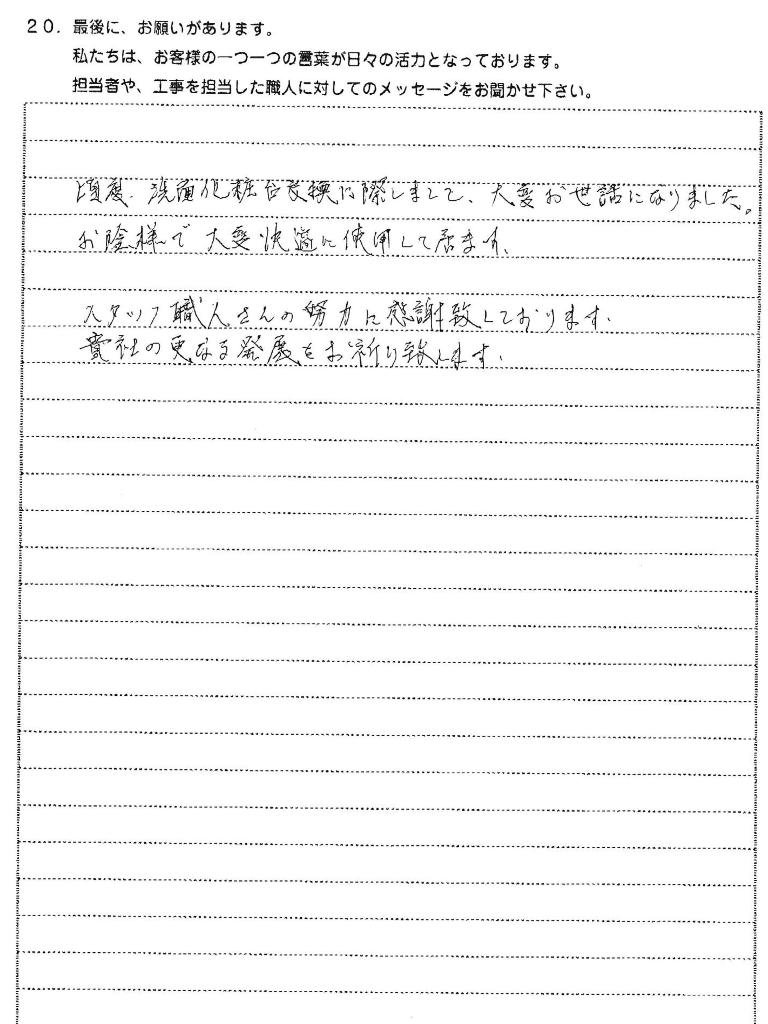 20. 最後に、お願いがあります。
私たちは、お客様の一つ一つの言葉が日々の活力となっております。
担当者や、工事を担当した職人に対してのメッセージをお聞かせ下さい。
頃度、洗面化粧台交換に際しまして、大変お世話になりました。
お陰様で大変快適に使用して居ます、
スタッフ職人さんの努力に感謝致しております.
貴社の更なる発展をお祈り致します.